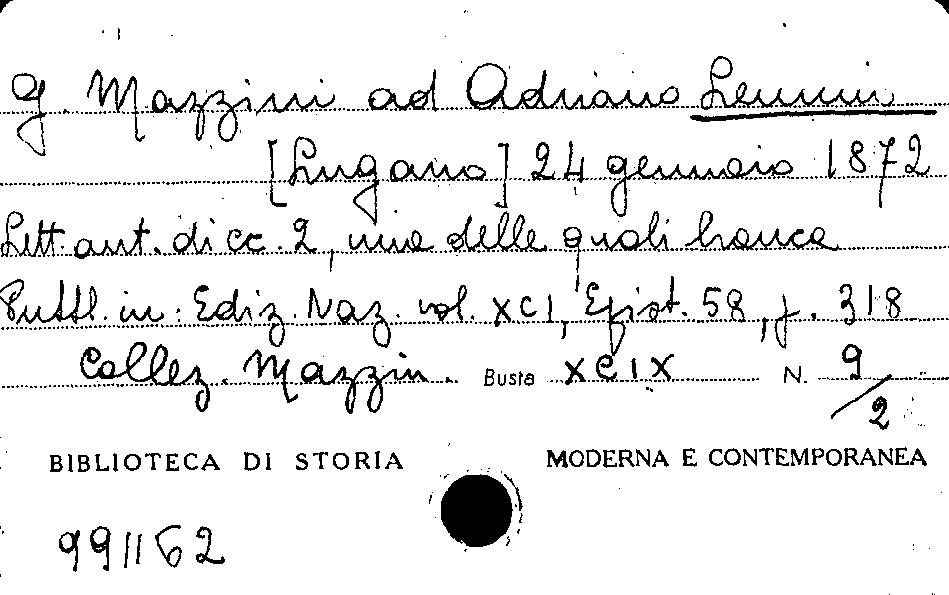 G. Mazzini ad Adriano Lemmi
[Lugano] 24 gennaio 1872
Lett. aut. di cc. 2, una delle quali bianca
Pubbl. in: Ediz. Naz. vol. XCI, Epist. 58, p. 318
Collez. Mazzin. Busta XCIX N. 9/2
BIBLIOTECA DI STORIA MODERNA E CONTEMPORANEA
991162